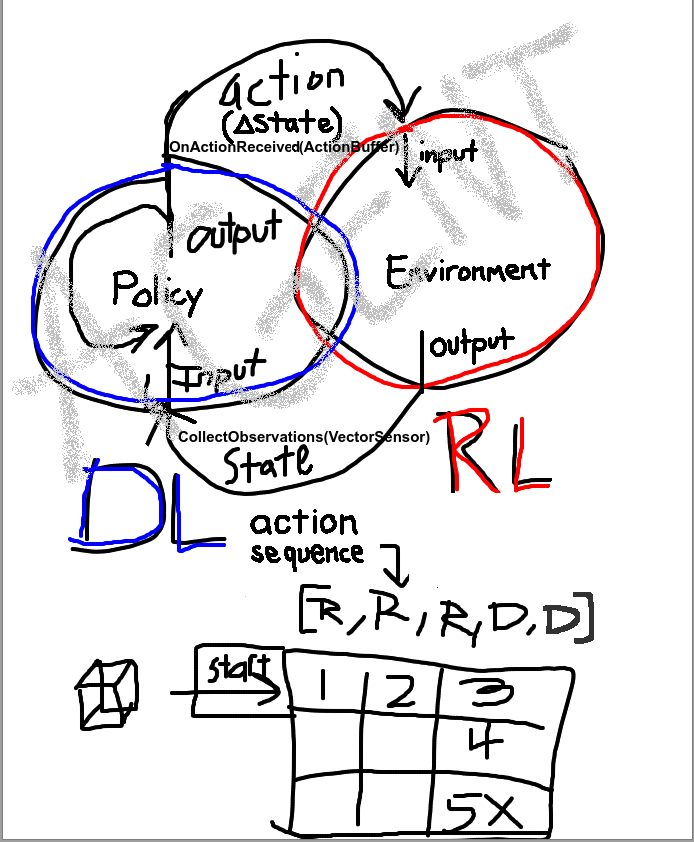 action
(Δstate)
OnActionReceived(ActionBuffer)
input
output
Environment
Policy
output
Input
CollectObservations(VectorSensor)
State
RL
DL
action
sequence
[R, R, R, D, D]
start
1 2 3
4
5X